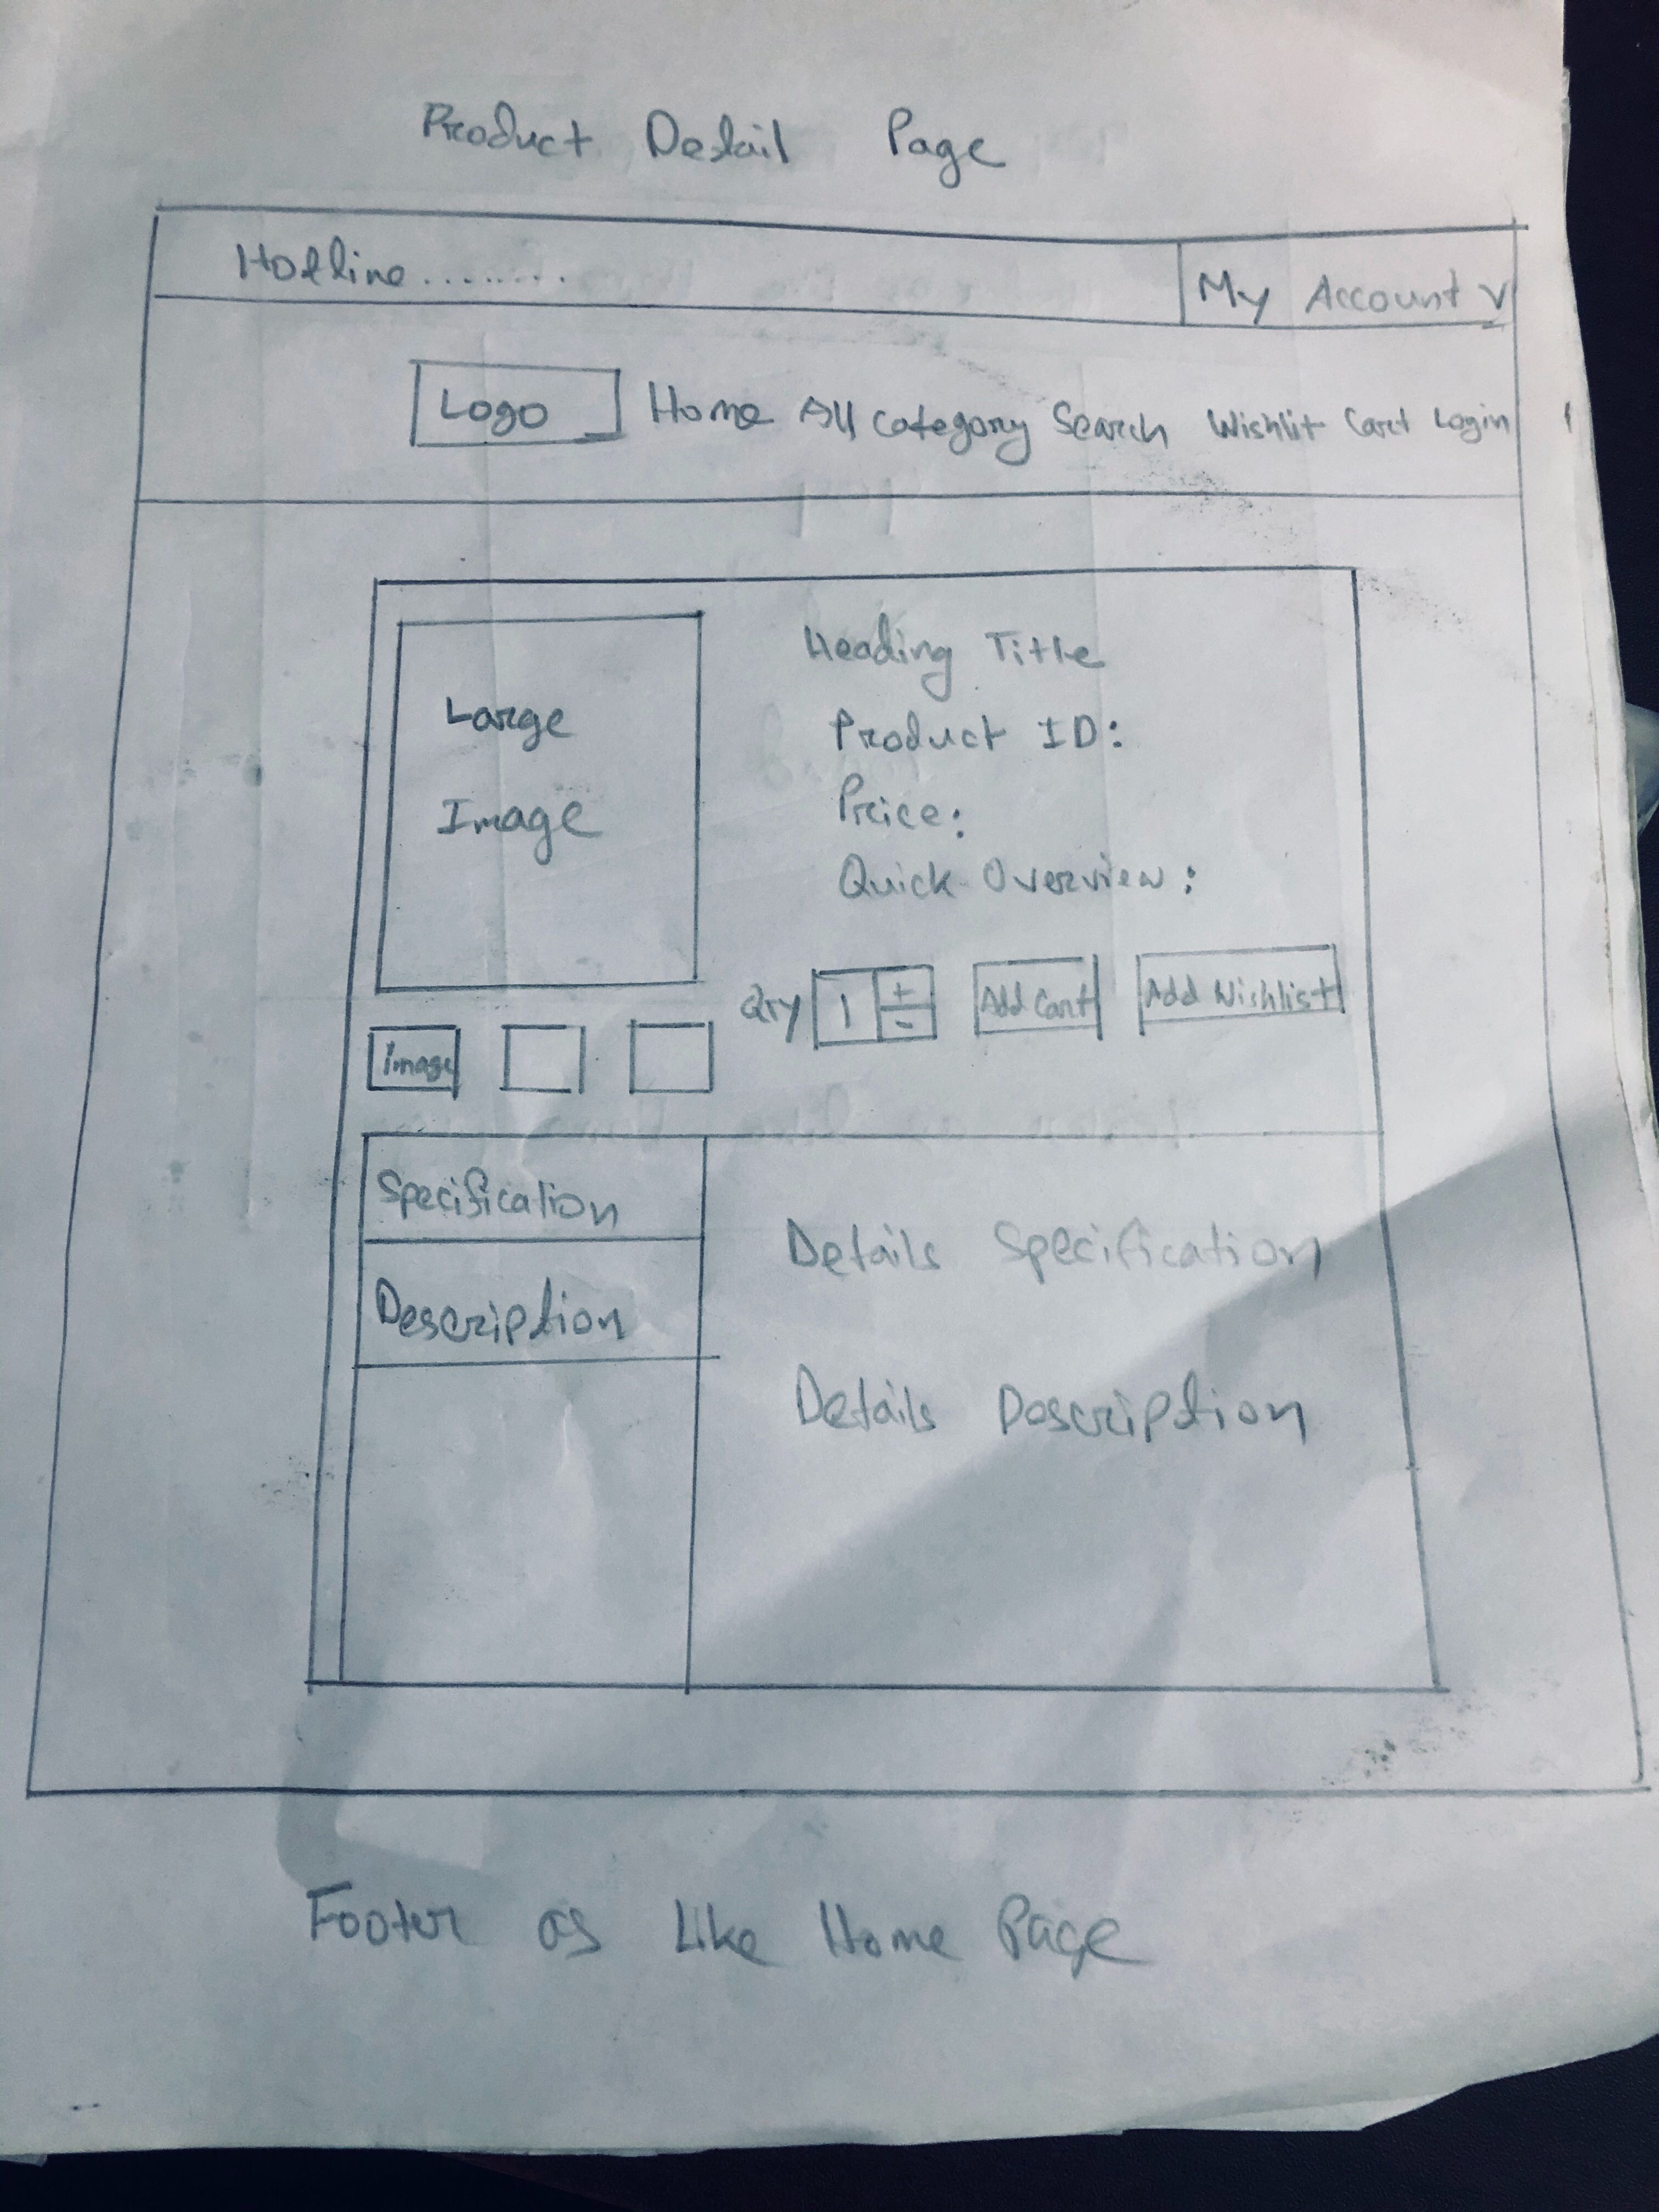 Product Detail Page
Hotline........
My Account v
Logo Home All Category Search Wishlit Cart Login
Large
Image
Heading Title
Product ID:
Price:
Quick Overview:
Qty 1 + - Add Cart Add Wishlist
Image
Specification
Description
Details Specification
Details Description
Footer as Like Home Page